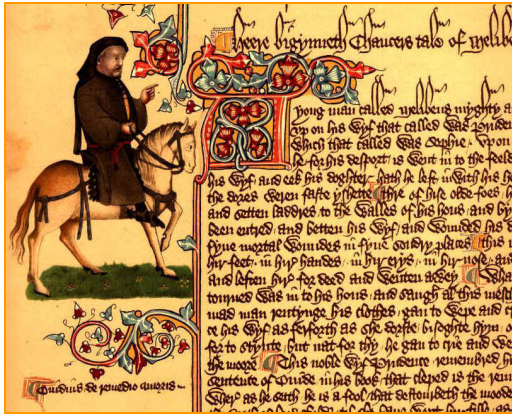 Heere bigynneth Chaucers tale of Melibe
A yong man called Melibeus myghty a
vp on his Wyf that called Was Pruden
Which that called Was Sophie Vpon
he for his desport is Went in to the feeld
his Wyf and eek his doghter hath he left in With his h
the dores Weren faste yshette Thre of hise olde foes h
and setten laddres to the Walles of his hous and by
been entred and betten his Wyf and Wounded his d
fyue mortal Woundes in fyue sondry places This
hir feet in hir handes in hir erys in hir nose and
and leften hir for deed and Wenten awey Whan
tourned Was in to his hous and saugh al this mesch
mad man rentynge his clothes gan to Wepe and c
ce his Wyf as ferforth as she dorste bisoghte hym
for to stynte but nat for thy he gan to crie and We
the moore This noble Wyf Prudence remembred h
sentence of Ouide in his book that cleped is the rem
Wher as he seith he is a fool that destourbeth the mood
Ouidius de remedio amoris